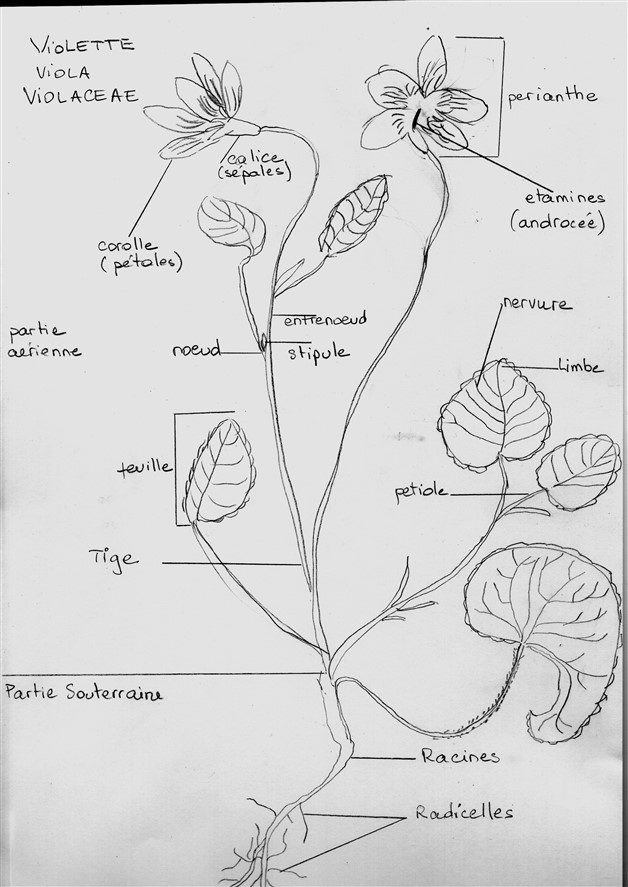 VIOLETTE
VIOLA
VIOLACEAE
perianthe
calice
(sépales)
etamines
(androceé)
corolle
(pétales)
nervure
entrenoeud
partie
aérienne
noeud
stipule
Limbe
feuille
petiole
Tige
Partie Souterraine
Racines
Radicelles